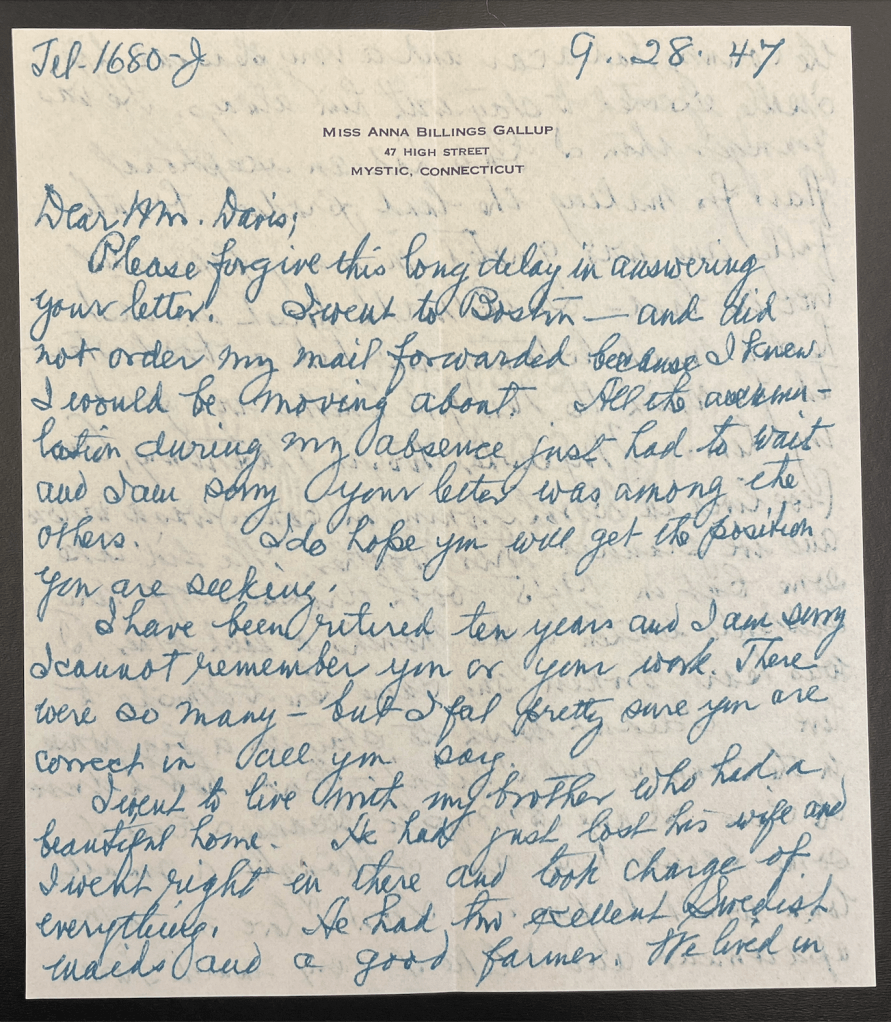 Tel-1680-J 9. 28. 47
MISS ANNA BILLINGS GALLUP
47 HIGH STREET
MYSTIC, CONNECTICUT
Dear Mrs. Davis;
Please forgive this long delay in answering
your letter. I went to Boston — and did
not order my mail forwarded because I knew
I would be moving about. All the accumu-
lation during my absence just had to wait
and I am sorry your letter was among the
others. I do hope you will get the position
you are seeking.
I have been retired ten years and I am sorry
I cannot remember you or your work. There
were so many — but I feel pretty sure you are
correct in all you say.
I went to live with my brother who had a
beautiful home. He had just lost his wife and
I went right in there and took charge of
everything. He had two excellent Swedish
maids and a good farmer. We lived in